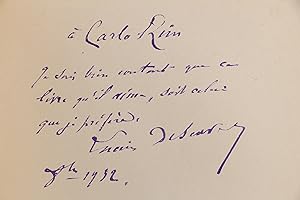 à Carlo Rim
Je suis bien content que ce
livre qu'il aime, soit celui
que je préfère,
Lucien Descaves
1932.